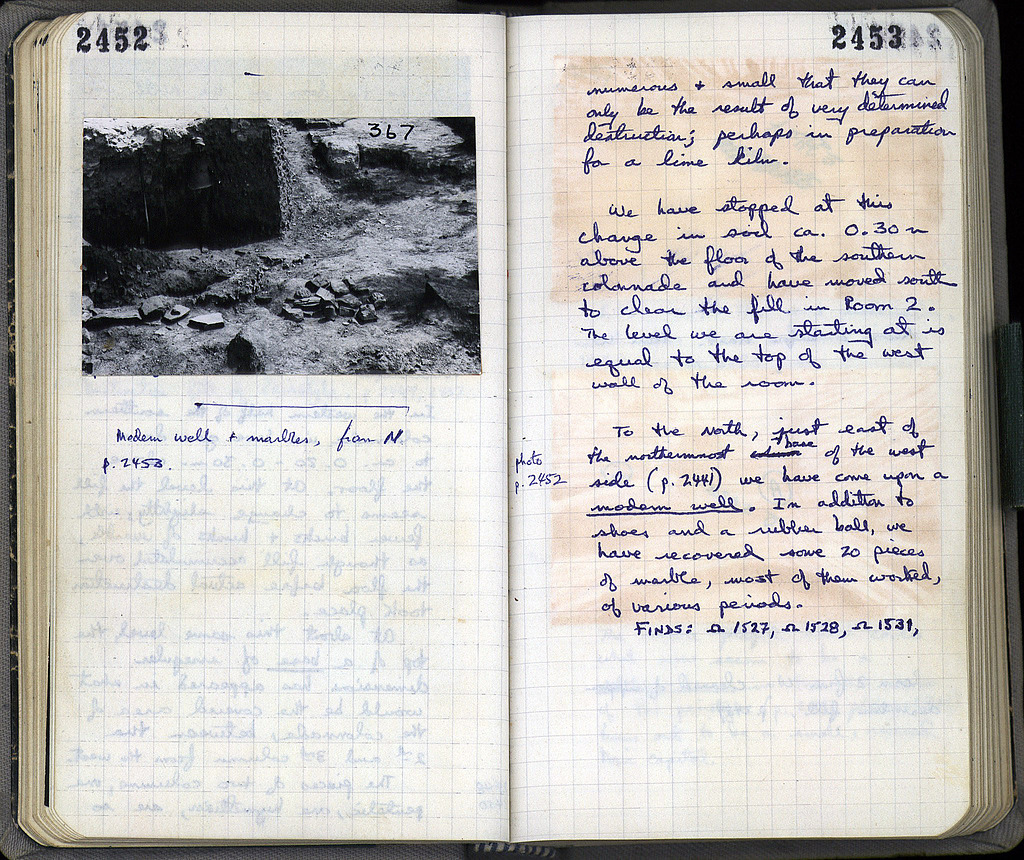 2452
367
Modern well + marbles, from N.
p. 2453.
2453
numerous + small that they can
only be the result of very determined
destruction; perhaps in preparation
for a lime kiln.
We have stopped at this
change in soil ca. 0.30 m
above the floor of the southern
colonnade and have moved south
to clear the fill in Room 2.
The level we are starting at is
equal to the top of the west
wall of the room.
To the North, just east of
the northernmost column base of the west
photo
p. 2452
side (p. 2441) we have come upon a
modern well. In addition to
shoes and a rubber ball, we
have recovered some 20 pieces
of marble, most of them worked,
of various periods.
FINDS: Ω 1527, Ω 1528, Ω 1531,